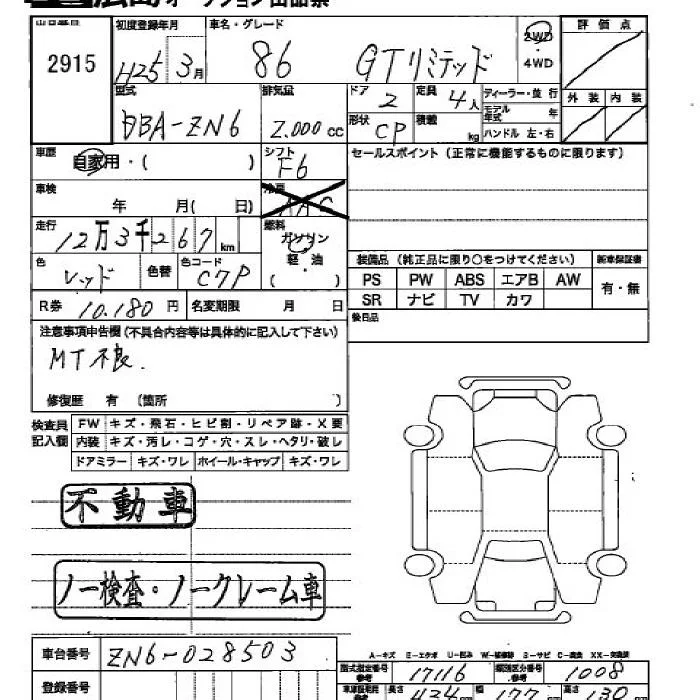 広島 オークション 出品票
出品番号 初度登録年月 車名・グレード 2WD・4WD 評価点
2915 H25 3月 86 GTリミテッド
外装 内装
型式 排気量 ドア 2 定員 4人 ディーラー・並行
DBA-ZN6 2.000cc 形状 CP 積載 kg モデル年式 年
ハンドル 左・右
車歴 自家用・( ) シフト F6 セールスポイント(正常に機能するものに限ります)
車検 年 月( 日) 冷房 AAC
走行 12万3千267km 燃料 ガソリン 軽・油 ( )
色 レッド 色替 色コード C7P 装備品(純正品に限り○をつけてください) 新車保証書
PS PW ABS エアB AW 有・無
SR ナビ TV カワ
R券 10.180円 名変期限 月 日 後日品
注意事項申告欄(不具合内容等は具体的に記入して下さい)
MT不良.
修復歴 有(箇所 )
検査員記入欄 FW キズ・飛石・ヒビ割・リペア跡・X要
内装 キズ・汚レ・コゲ・穴・スレ・ヘタリ・破レ
ドアミラー キズ・ワレ ホイール・キャップ キズ・ワレ
不動車
ノー検査・ノークレーム車
A-キズ E-エクボ U-凹み W-補修跡 S-サビ C-腐食 XX-交換済
車台番号 ZN6-028503
型式指定番号 17116 類別区分番号 1008
登録番号 長さ 424cm 幅 177cm 高さ 130cm